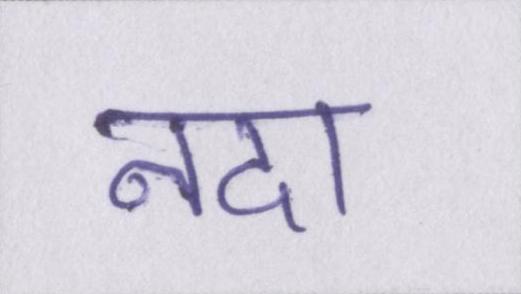 नदा